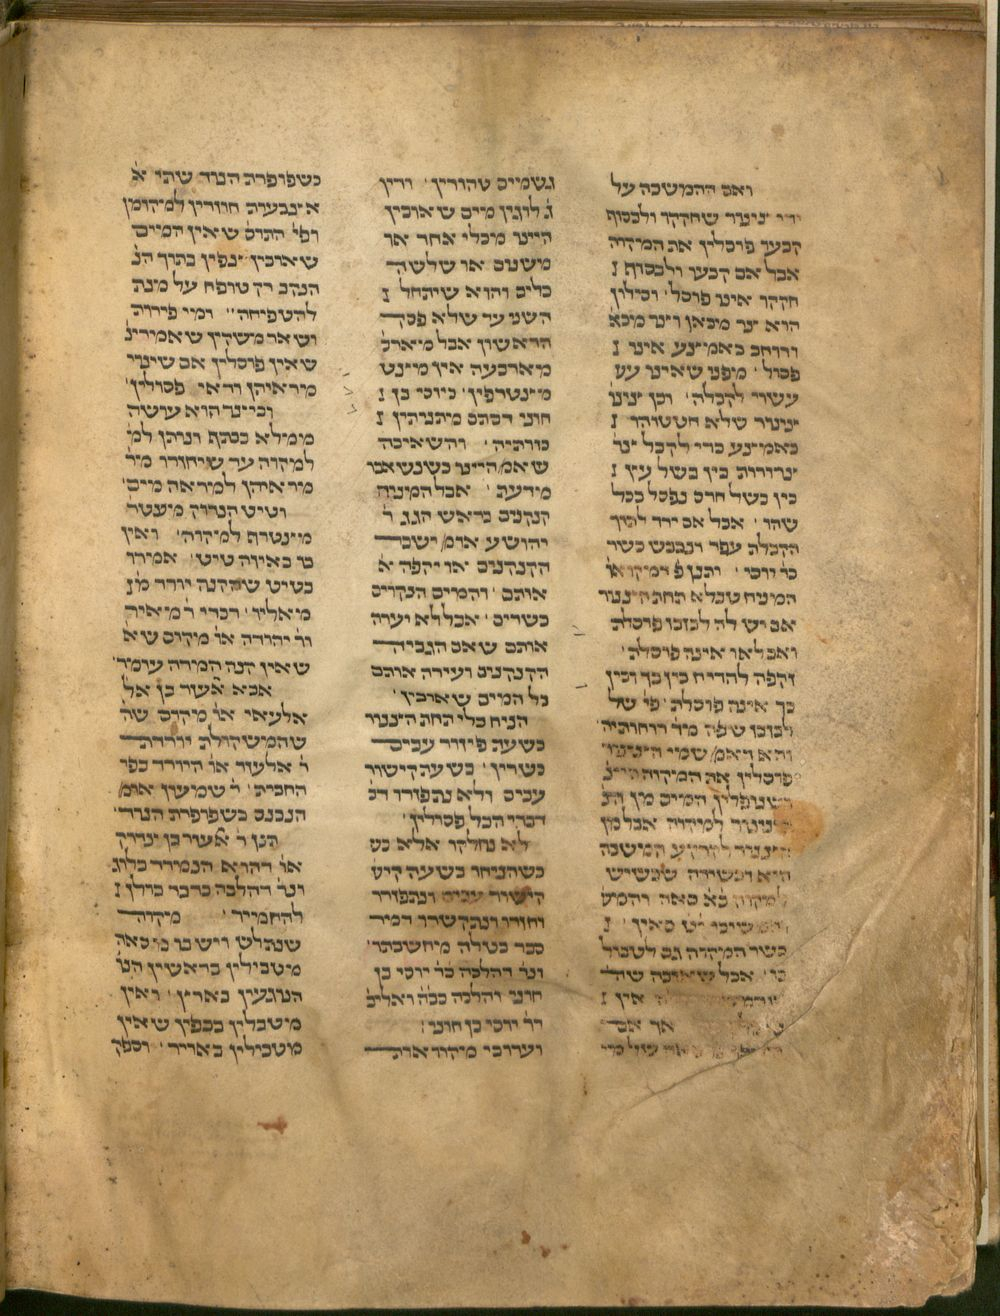 ואם ההמשכה על
ידי צינור שחקקו ולבסוף
קבעו פוסלין את המקוה
אבל אם קבעו ולבסוף
חקקו אינו פוסל׳ וסילון
הוא צר מכאן וצר מכא
ורוחב באמצע אינו
פסול׳ מפני שאינו עש
עשוי לקבלה׳ וכן צינו
צינור שלא חטטוהו
באמצע כדי לקבל צר׳
צרורות בין בשל עץ
בין בשל חרס נפסל בכל
שהו׳ אבל אם ירד לתוך
הקבלה עפר ונכבש כשר
כר׳ יוסי׳ ותנן פ׳ דמקואו׳
המניח טבלא תחת הצינור
אם יש לה לבזבז פוסלת
ואם לאו אינה פוסלת׳
זקפה להדיח בין כך ובין
כך אינה פוסלת׳ פי׳ של
לבזבז שפה מד׳ רוחותיה׳
והא דאמ׳ שמי הצינור
פוסלין את המקוה היינ׳
כשנופלין המים מן הצ׳
הצינור למקוה אבל מן
הצינור לקרקע המשכה
היא דכשירה שכשיש
למקוה כ׳א סאה והמש׳
סאין׳
כשר המקוה גם לטבול
בו׳ אבל שאיבה שה
אין
אך אם
גשמיים טהורין׳ ודין
ג׳ לוגין מים שאובין
היינו מכלי אחד או
משנים או שלשה
כלים והוא שיתחיל
השני עד שלא פסק
הראשון אבל מארב׳
מארבעה אין מצט
מצטרפין׳ כיוסי בן
חוני דסתם מתניתין
כוותיה׳ והשאיבה
שאמ׳ היינו כשנשאבו
מדעת׳ אבל המניח
קנקנים בראש הגג ר׳
יהושע אומ׳ ישבר
הקנקנים או יכפה א
אותם׳ והמים הנקוים
כשרים׳ אבל לא יערה
אותם שאם הגביה
הקנקנים ועירה אותם
כל המים שאובין׳
הניח כלי תחת הצינור
בשעת פיזור עבים
כשרין׳ בשעת קישור
עבים ולא נתפזרו דב׳
דברי הכל פסולין׳
לא נחלקו אלא בש
כשהניחו בשעת קיש׳
קישור עבים ונתפזרו
וחזרו ונתקשרו דמר
סבר בטלה מחשבתו׳
ונר׳ דהלכה כר׳ יוסי בן
חוני והלכה כב״ה ואליב׳
דר׳ יוסי בן חוני׃
ועירובי מקוואות
כשפופרת הנוד שתי א׳
אצבעות חוזרין למקומן
ופי׳ התם שאין המים
שאובין צפין בתוך הנ׳
הנקב רק טופח על מנת
להטפיחה״ ומי פירות
ושאר משקין שאמרינ׳
שאין פוסלין אם שינוי
מראיהן ודאי פסולין׳
וכיצד הוא עושה
ממלא בכתף ונותן למ׳
למקוה עד שיחזרו מר׳
מראיהן למראה מים׳
וטיט הנרוק מצטר׳
מצטרף למקוה׳ ואין
בו באיזה טיט׳ אמרו
בטיט שהקנה יורד מ׳
מאליו׳ דברי ר׳ מאיר
ור׳ יהודה או׳ מקום שא׳
שאין קנה המדה עומד׳
אבא אלעזר בן אל׳
אלעאי או׳ מקום שה׳
שהמשקולת יורדת
ר׳ אלעזר או׳ היורד בפי
החבית׳ ר׳ שמעון אומ׳
הנכנס בשפופרת הנוד׳
תנן ר׳ אלעזר בן צדוק
או׳ דהוא הנמדד בלוג
ונר׳ דהלכה כדברי כולן
להחמיר׳ מקוה
שנתלש ויש בו מ׳ סאה
מטבילין בראשין הנו׳
הנוגעין בארץ׳ ואין
מטבילין בכפין שאין
מטבילין באויר׳ וספק